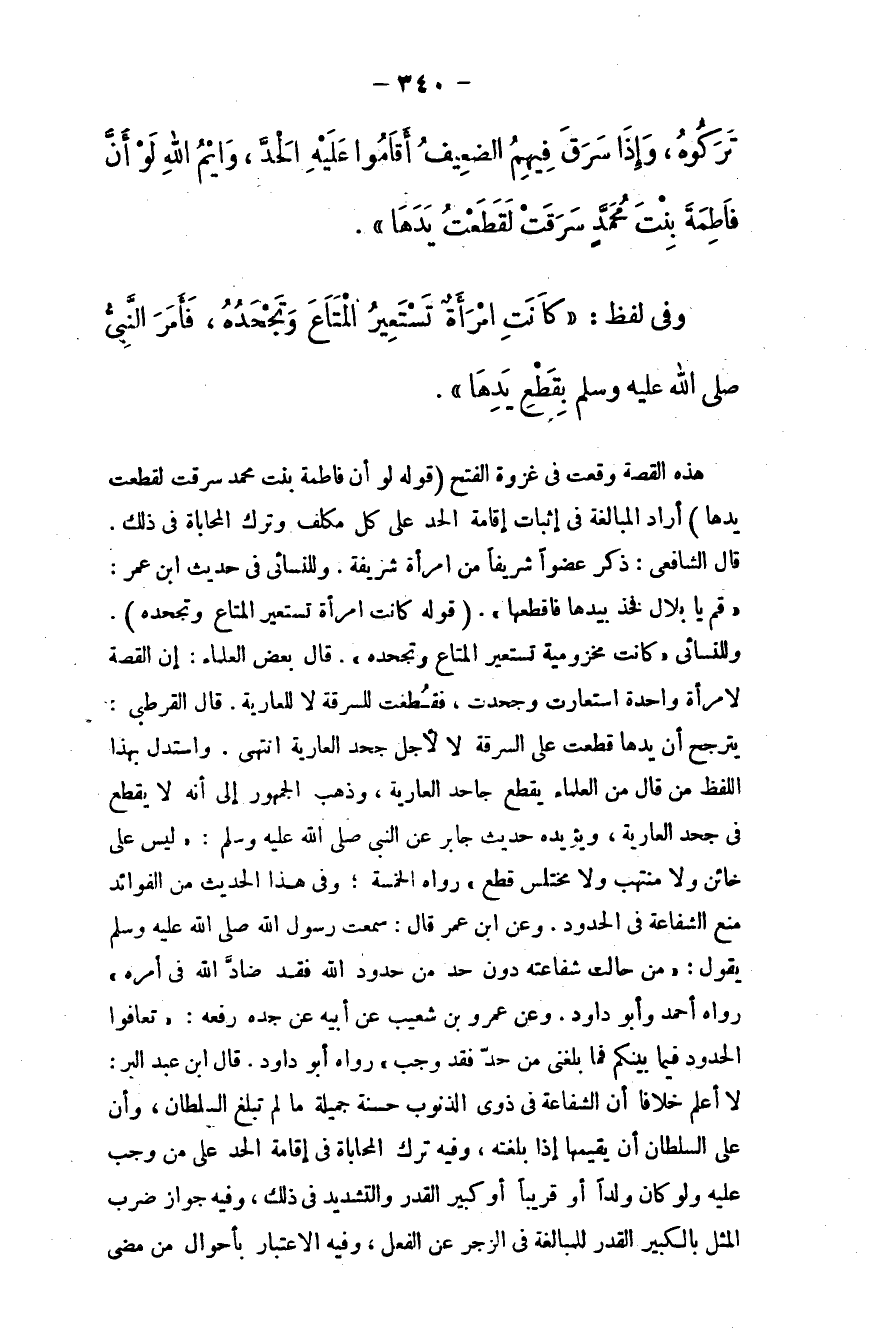 - ٣٤٠ -
تَرَكُوهُ ، وَإِذَا سَرَقَ فِيهِمُ الضعِيفُ أَقَامُوا عَلَيْهِ الْحَدَّ ، وَايْمُ اللهِ لَوْ أَنَّ
فَاطِمَةَ بِنْتَ مُحَمَّدٍ سَرَقَتْ لَقَطَعْتُ يَدَهَا » .
وفى لفظ : « كَانَتِ امْرَأَةٌ تَسْتَعِيرُ الْمَتَاعَ وَتَجْحَدُهُ ، فَأَمَرَ النَّبِىُّ
صلى الله عليه وسلم بِقَطْعِ يَدِهَا » .
هذه القصة وقعت فى غزوة الفتح (قوله لو أن فاطمة بنت محمد سرقت لقطعت
يدها ) أراد المبالغة فى إثبات إقامة الحد على كل مكلف وترك المحاباة فى ذلك .
قال الشافعى : ذكر عضواً شريفاً من امرأة شريفة . وللنسائى فى حديث ابن عمر :
« قم يا بلال فخذ بيدها فاقطعها » . ( قوله كانت امرأة تستعير المتاع وتجحده ) .
وللنسائى « كانت مخزومية تستعير المتاع وتجحده » . قال بعض العلماء : إن القصة
لامرأة واحدة استعارت وجحدت ، فقُطعت للسرقة لا للعارية . قال القرطبى :
يترجح أن يدها قطعت على السرقة لا لأجل جحد العارية انتهى . واستدل بهذا
اللفظ من قال من العلماء يقطع جاحد العارية ، وذهب الجمهور إلى أنه لا يقطع
فى جحد العارية ، ويؤيده حديث جابر عن النبى صلى الله عليه وسلم : « ليس على
خائن ولا منتهب ولا مختلس قطع » رواه الخمسة ؛ وفى هـذا الحديث من الفوائد
منع الشفاعة فى الحدود . وعن ابن عمر قال : سمعت رسول الله صلى الله عليه وسلم
يقول : « من حالت شفاعته دون حد من حدود الله فقـد ضادَّ الله فى أمره »
رواه أحمد وأبو داود . وعن عمرو بن شعيب عن أبيه عن جده رفعه : « تعافوا
الحدود فيما بينكم فما بلغنى من حدّ فقد وجب » رواه أبو داود . قال ابن عبد البر :
لا أعلم خلافا أن الشفاعة فى ذوى الذنوب حسنة جميلة ما لم تبلغ السلطان ، وأن
على السلطان أن يقيمها إذا بلغته ، وفيه ترك المحاباة فى إقامة الحد على من وجب
عليه ولو كان ولداً أو قريباً أو كبير القدر والتشديد فى ذلك ، وفيه جواز ضرب
المثل بالكبير القدر للمبالغة فى الزجر عن الفعل ، وفيه الاعتبار بأحوال من مضى